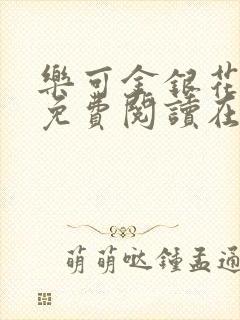 樂可金銀花
免費閱讀在
萌萌哒鍾孟通